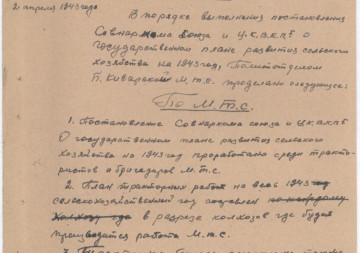 2 апреля 1943 года
В порядке выполнения постановления
Совнаркома союза и Ц.К.В.К.П б о
государственном плане развития сельского
хозяйства на 1943 год, Политотделом
М.Т.С. проделано следующее:
По М.Т.С.
1. Постановление Совнаркома союза и Ц.К.В.К.П б
о государственном плане развития сельского
хозяйства на 1943 год проработано среди тракто-
ристов и бригадиров М.Т.С.
2. План тракторных работ на весь 1943 год
сельскохозяйственный год составлен по каждому
колхозу где в разрезе колхозов где будет
производится работа М.Т.С.